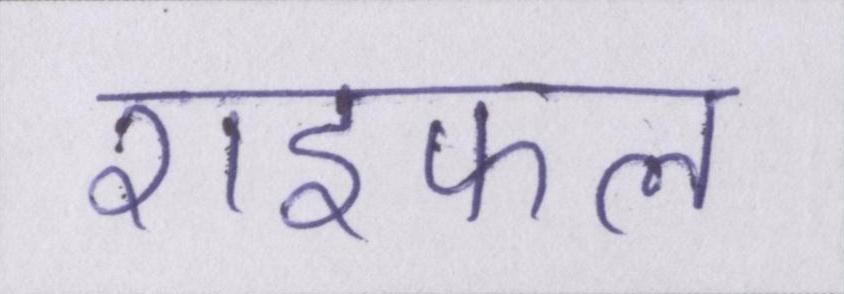 राइफल